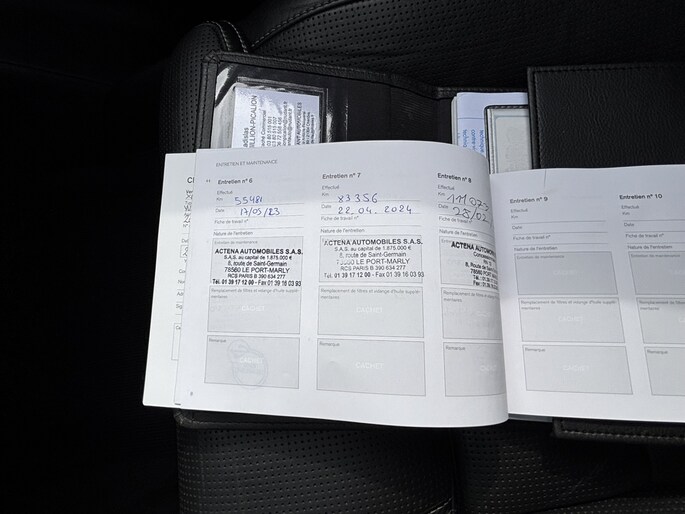 ENTRETIEN ET MAINTENANCE
Entretien n° 6
Effectué
Km 55481
Date 17/05/23
Fiche de travail n°
Nature de l'entretien
ACTENA AUTOMOBILES S.A.S.
S.A.S. au capital de 1.875.000 €
8, route de Saint-Germain
78560 LE PORT-MARLY
RCS PARIS B 390 634 277
Tél. 01 39 17 12 00 - Fax 01 39 16 03 93
Remplacement de filtres et vidange d'huile supplé-
mentaires
CACHET
Remarque
CACHET
Entretien n° 7
Effectué
Km 83356
Date 22.04.2024
Fiche de travail n°
Nature de l'entretien
ACTENA AUTOMOBILES S.A.S.
S.A.S. au capital de 1.875.000 €
8, route de Saint-Germain
78560 LE PORT-MARLY
RCS PARIS B 390 634 277
Tél. 01 39 17 12 00 - Fax 01 39 16 03 93
Remplacement de filtres et vidange d'huile supplé-
mentaires
CACHET
Remarque
CACHET
Entretien n° 8
Effectué
Km 111073
Date 28/02
Fiche de travail n°
Nature de l'entretien
ACTENA AUTOMO
8, Route de Saint-Ger
Remplacement de filtres et vidange
mentaires
Remarque
Entretien n° 9
Effectué
Km
Date
Fiche de travail n°
Nature de l'entretien
Entretien de maintenance
Remplacement de filtres et vidange d'huile supplé-
mentaires
CACHET
Remarque
CACHET
Entretien n° 10
Effectué
Km
Date
Fiche de travail n°
Nature de l'entretien
Entretien de maintenance
Remplacement de filtres
mentaires
Remarque
8